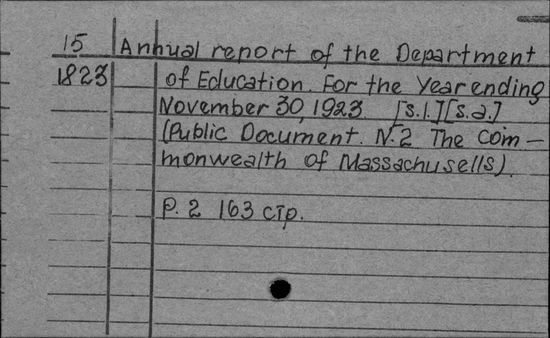 15 Annual report of the Department
1823 of Education. For the Year ending
November 30, 1923 [s.l.][s.a.]
(Public Document. N.2 The Com-
monwealth of Massachusells).
P. 2 163 стр.